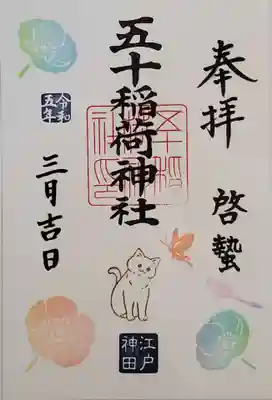 奉拝 啓蟄
五十稲荷神社
令和五年
三月吉日
江戸神田